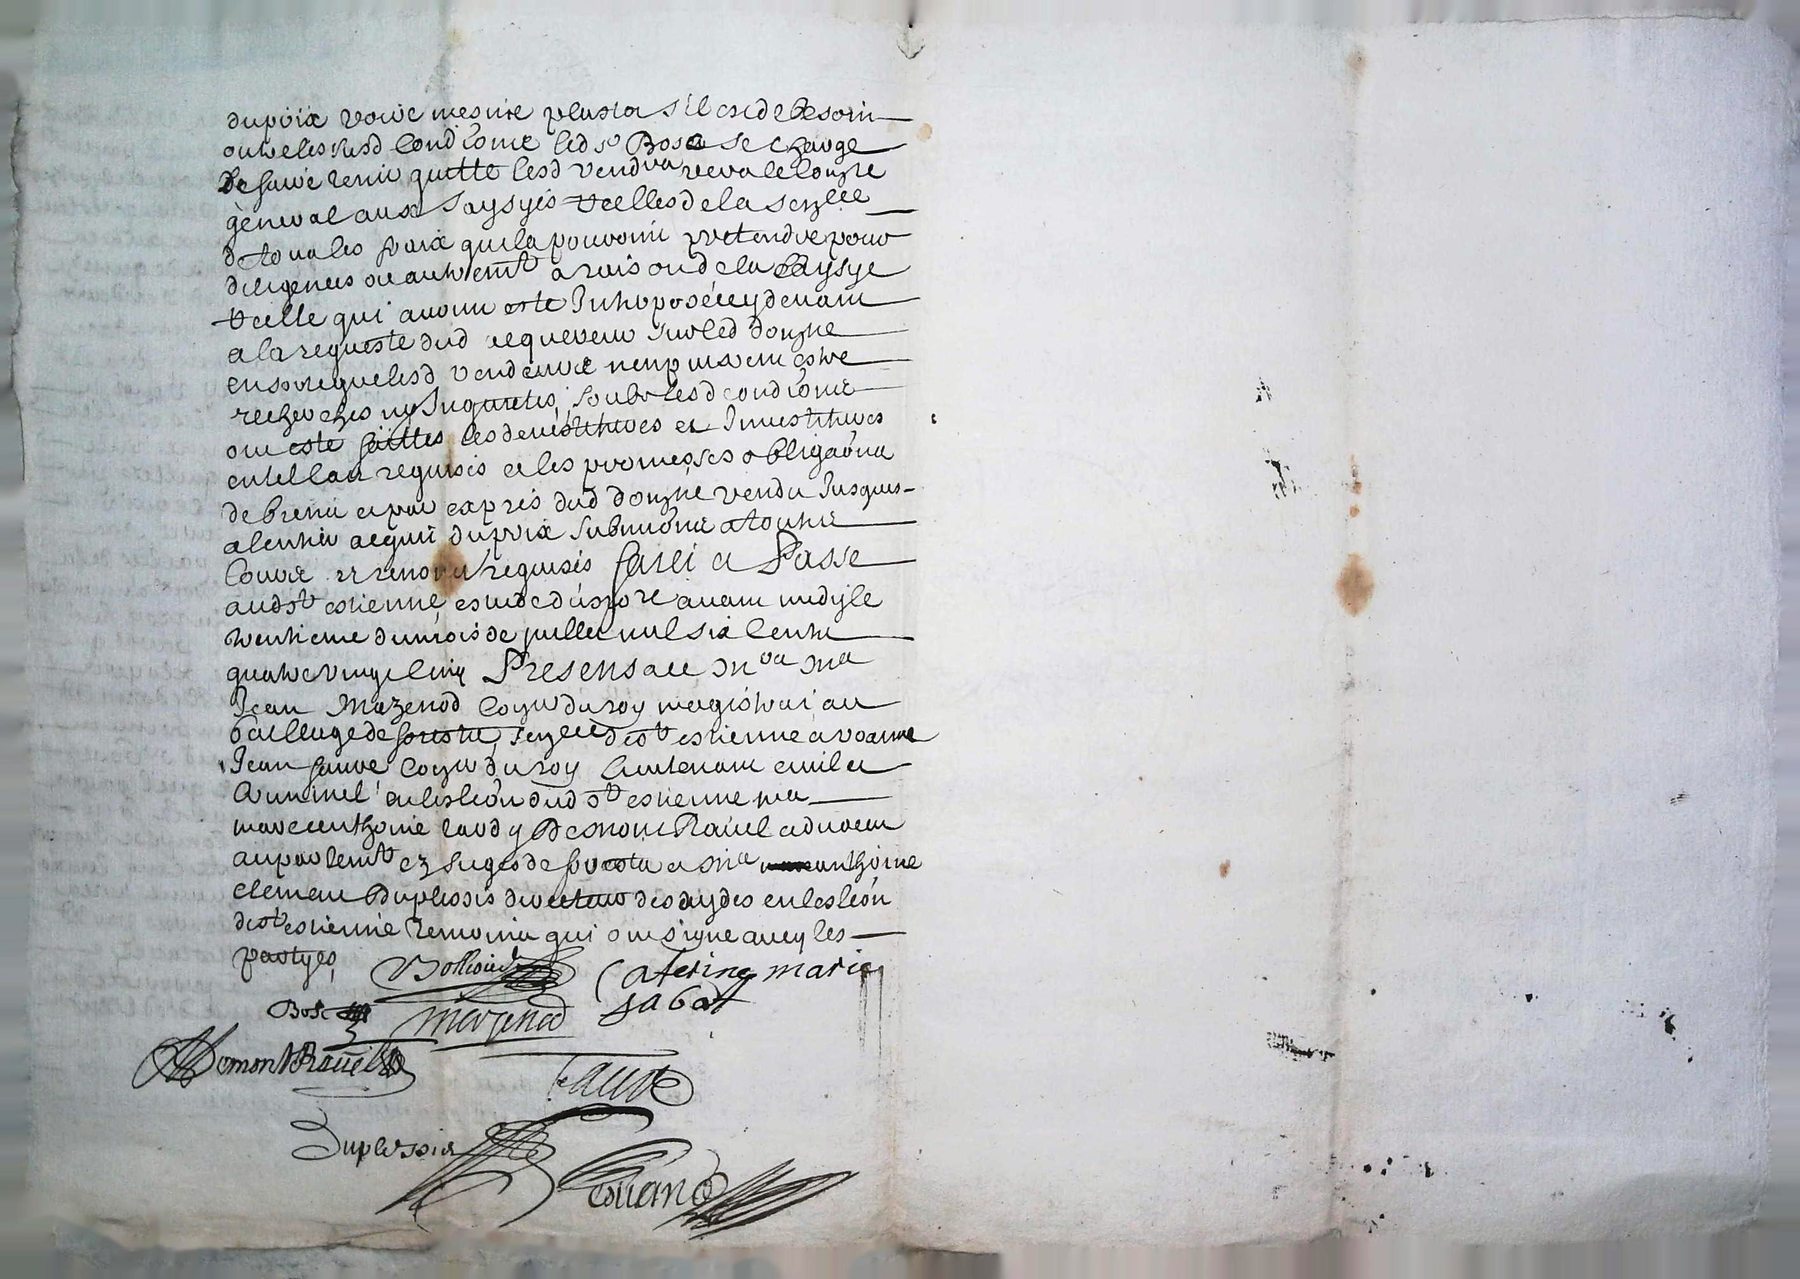 du prix voire mesme plustot s'il est de besoin
outre lesusd conditions led sr Bost se charge
de faire tenir quitte lesd vendrs vers le com̄re
general aux saysyes et celles de la senzlée
de tous les frais quils pouvoint pretendre pour
diligences ou autremt a raison de la saysye
et celle qui avoint este Interposée cy devant
a la requeste dud requereur sur led domyne
en sorte que lesd vendeurs nen puissent estre
recherches ny Inquietés, soubs lesd conditions
ont este faittes les devestitures et Investitures
en tel cas requises et les promesses obligaōns
de biens et par expres dud domyne vendu Jusques
a lentier acquit du prix submōns a toutes
Cours et renonōns requises fait et Passé
aud st estienne estude dud sore avant midy le
trentieme du mois de juillet mil six Cents
quatre vingt Cinq Presens a ce mrs me
Jean Mazenod Coner du roy magistrat au
bailliage de forests, senzée de st estienne
Jean faure Coner du roy Lieutenant civil et
Criminel en leslēon dud st estienne me
marc anthoine ravdy Demont Raüel advocat
au parlemt ez sieges de forestz et me anthoine
clement Duplessis directeur des aydes en leslēon
de st estienne temoins qui ont signe avec les
partyes,
Bollioud Caterine marie
Bost Mazenod sabot
Demont Raüel
faure
Duplessis